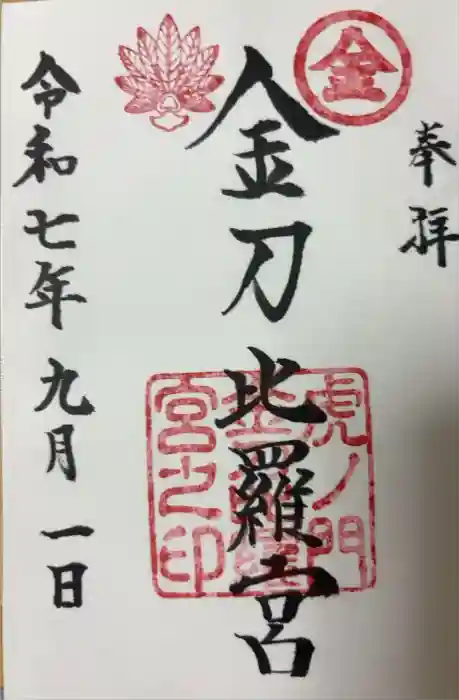 奉拝
金
金刀比羅宮
虎ノ門
金刀比羅
宮之印
令和七年九月一日